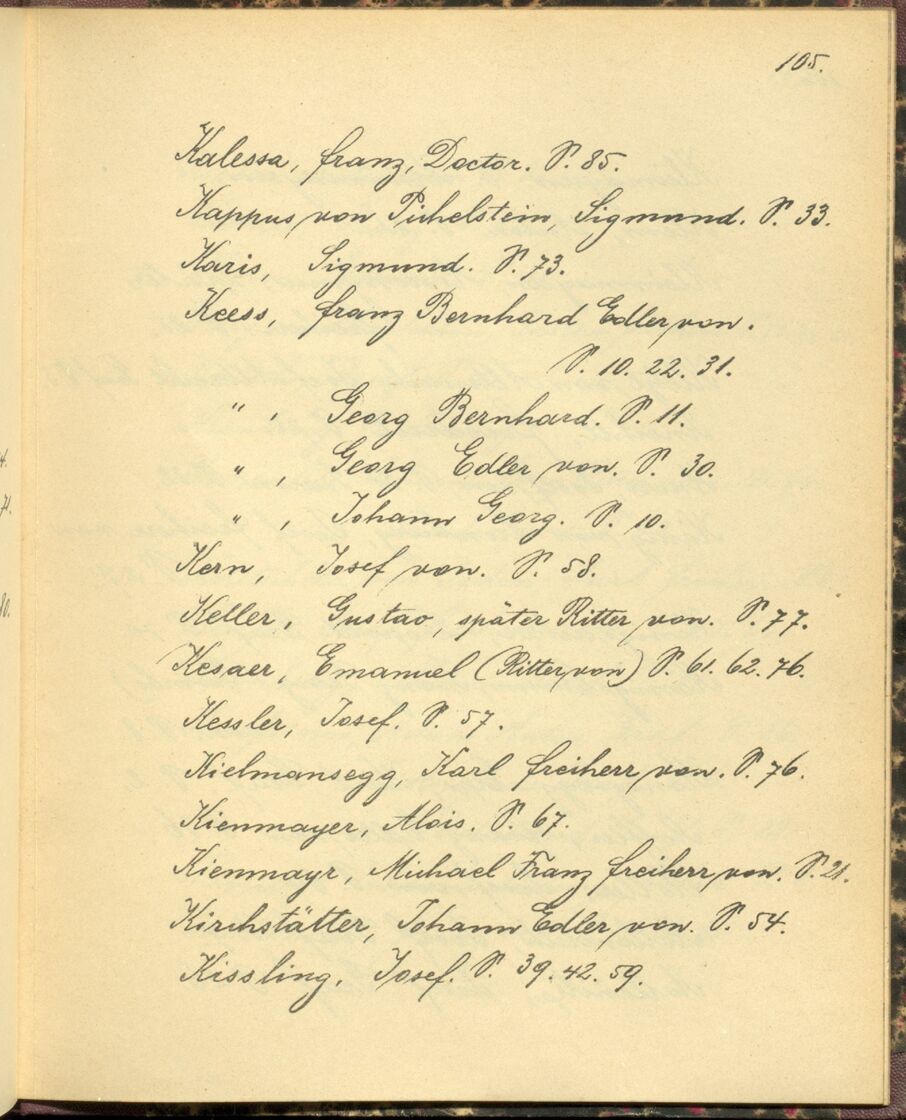 105.
Kalessa, Franz, Doctor. S. 85.
Kappus von Pichelstein, Sigmund. S. 33.
Karis, Sigmund. S. 73.
Keess, Franz Bernhard Edler von.
S. 10. 22. 31.
" , Georg Bernhard. S. 11.
" , Georg Edler von. S. 30.
" , Johann Georg. S. 10.
Kern, Josef von. S. 58.
Keller, Gustav, später Ritter von. S. 77.
Kesaer, Emanuel (Ritter von) S. 61. 62. 76.
Kessler, Josef. S. 57.
Kielmansegg, Karl Freiherr von. S. 76.
Kienmayer, Alois. S. 67.
Kienmayr, Michael Franz Freiherr von. S. 21.
Kirchstätter, Johann Edler von. S. 54.
Kissling, Josef. S. 39. 42. 59.